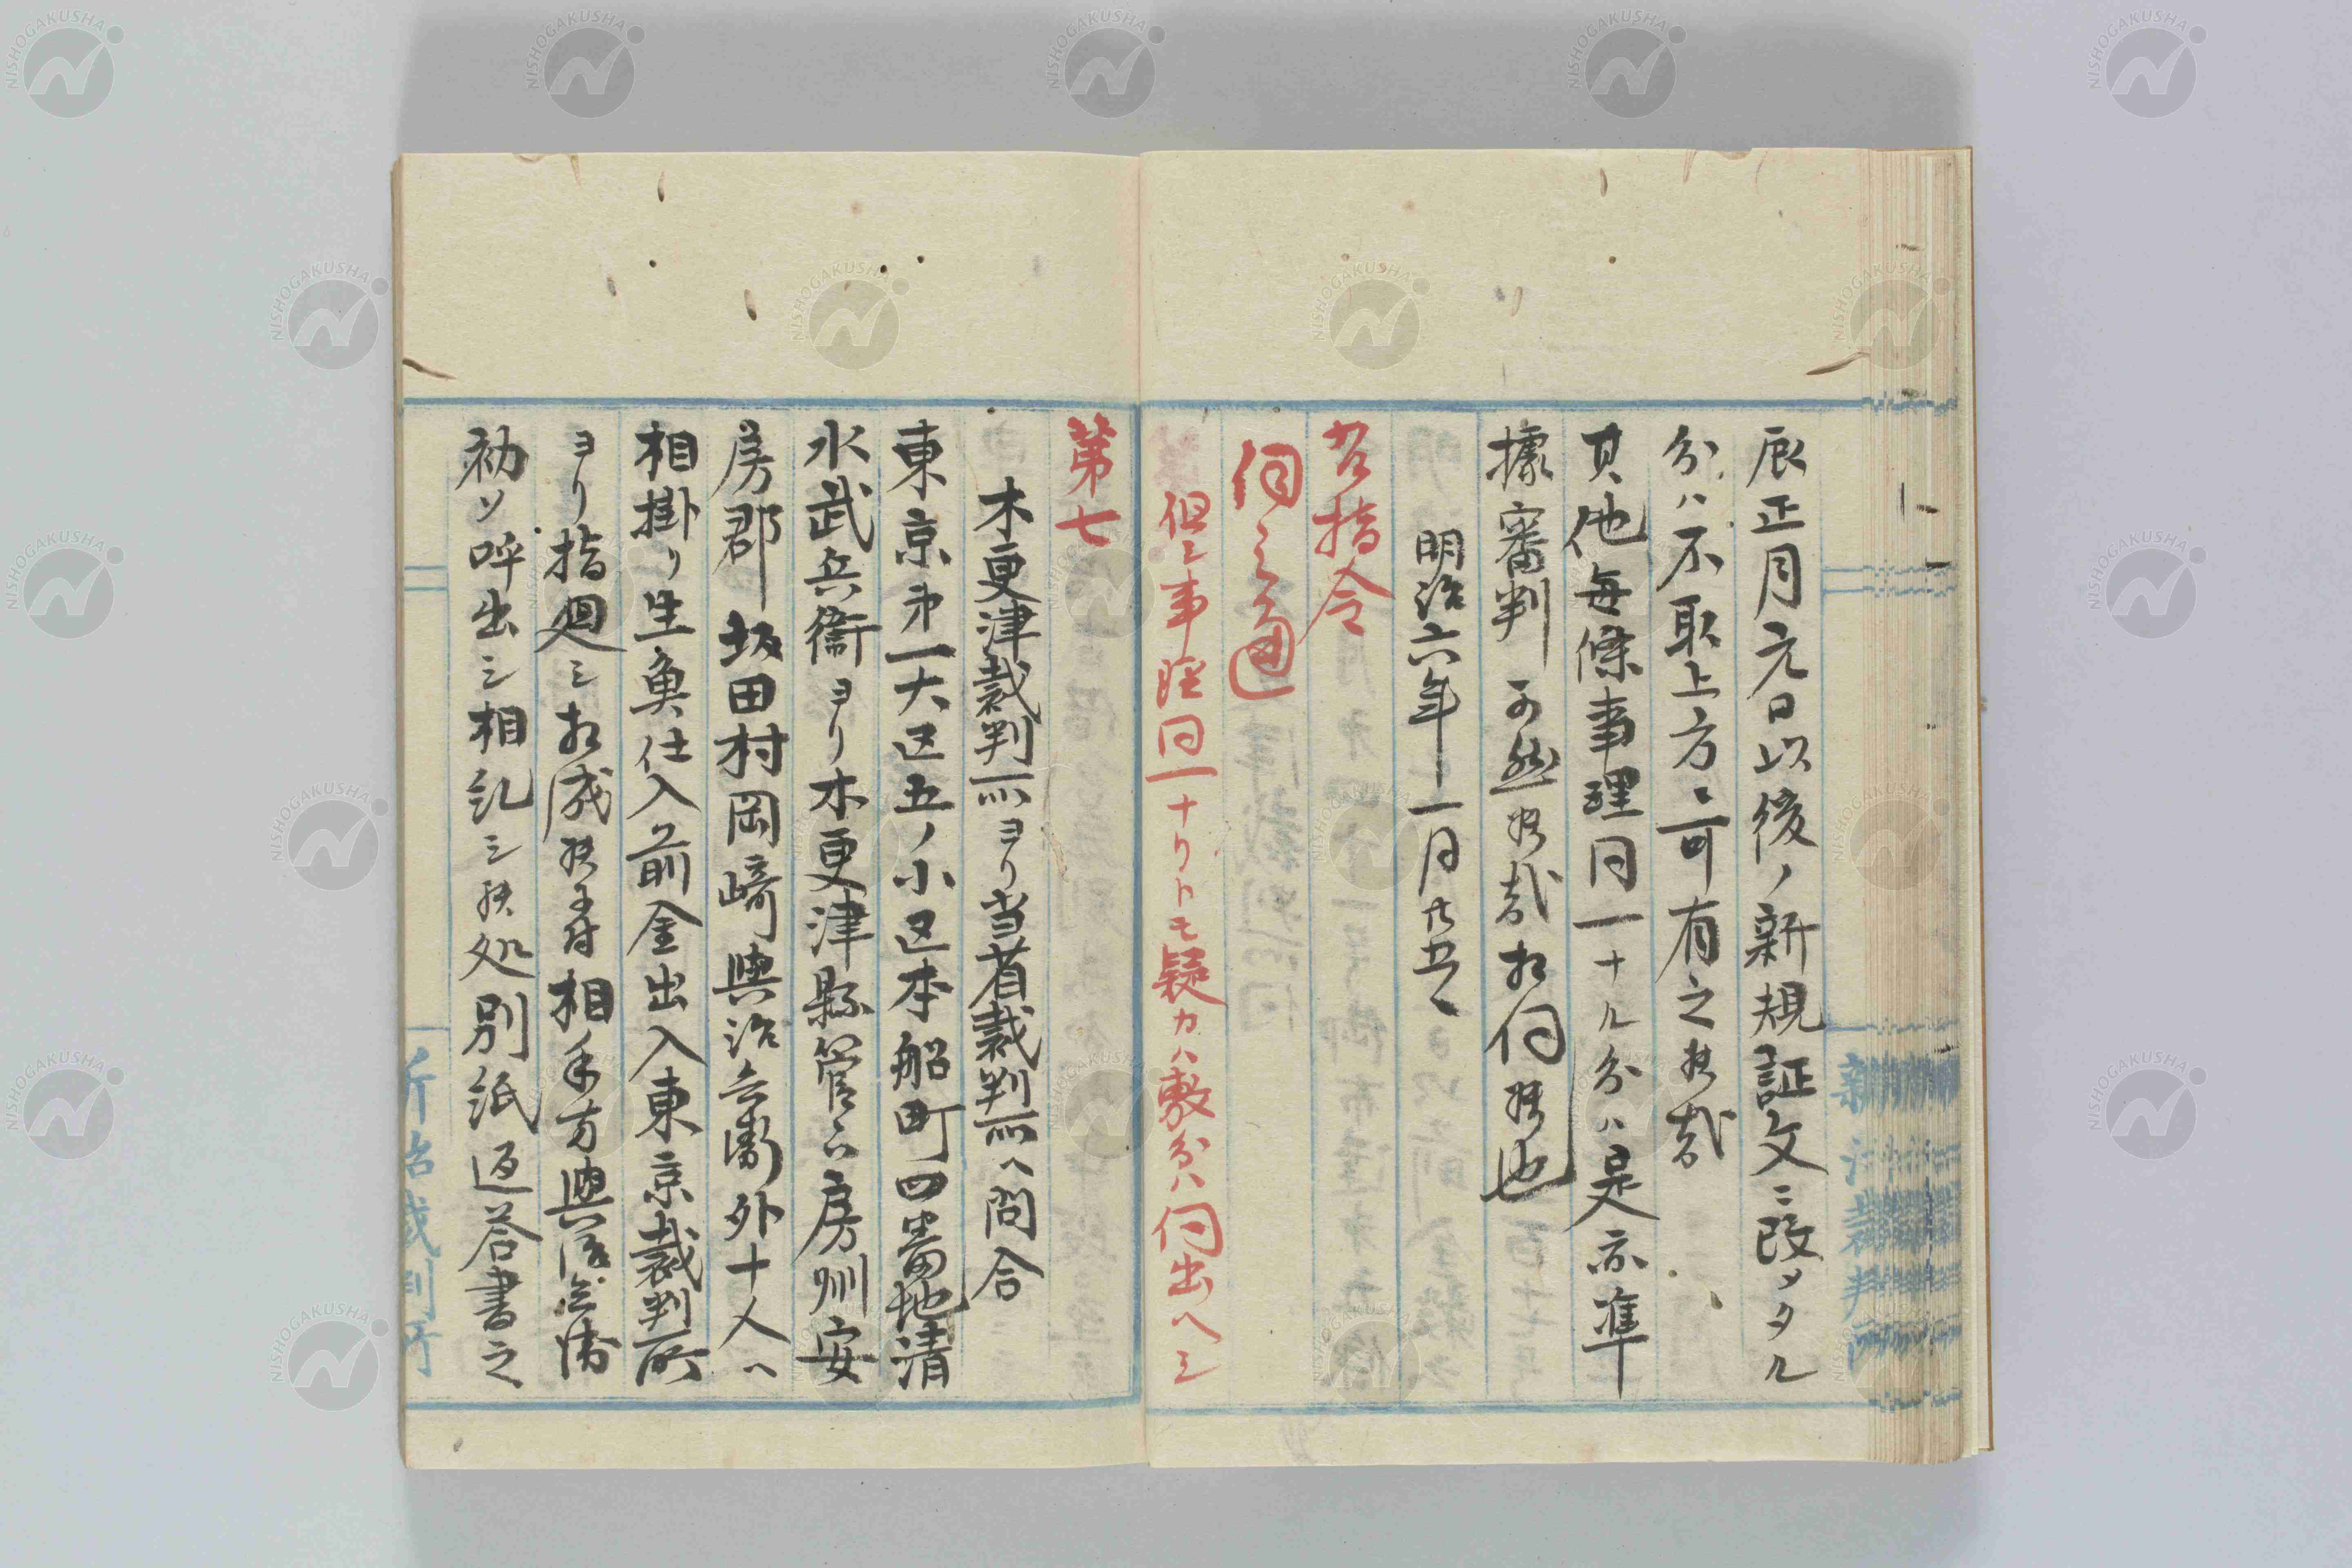 辰正月元日以後ノ新規証文ニ改メタル
分ハ不取上方ニ可有之候哉
其他毎條事理同一ナル分ハ是亦準
據審判可然候哉相伺候也
明治六年十一月廿五日
右指令
伺之通
但シ事理同一ナリトモ疑カハ敷分ハ伺出ヘシ
第七
木更津裁判所ヨリ当省裁判所ヘ問合
東京第一大区五ノ小区本船町四番地清
水武兵衞ヨリ木更津縣管下房州安
房郡坂田村岡﨑與治兵衞外十人ヘ
相掛リ生魚仕入前金出入東京裁判所
ヨリ指廻シ相成候ニ付相手方與治兵衛
初メ呼出シ相糺シ候処別紙返答書之